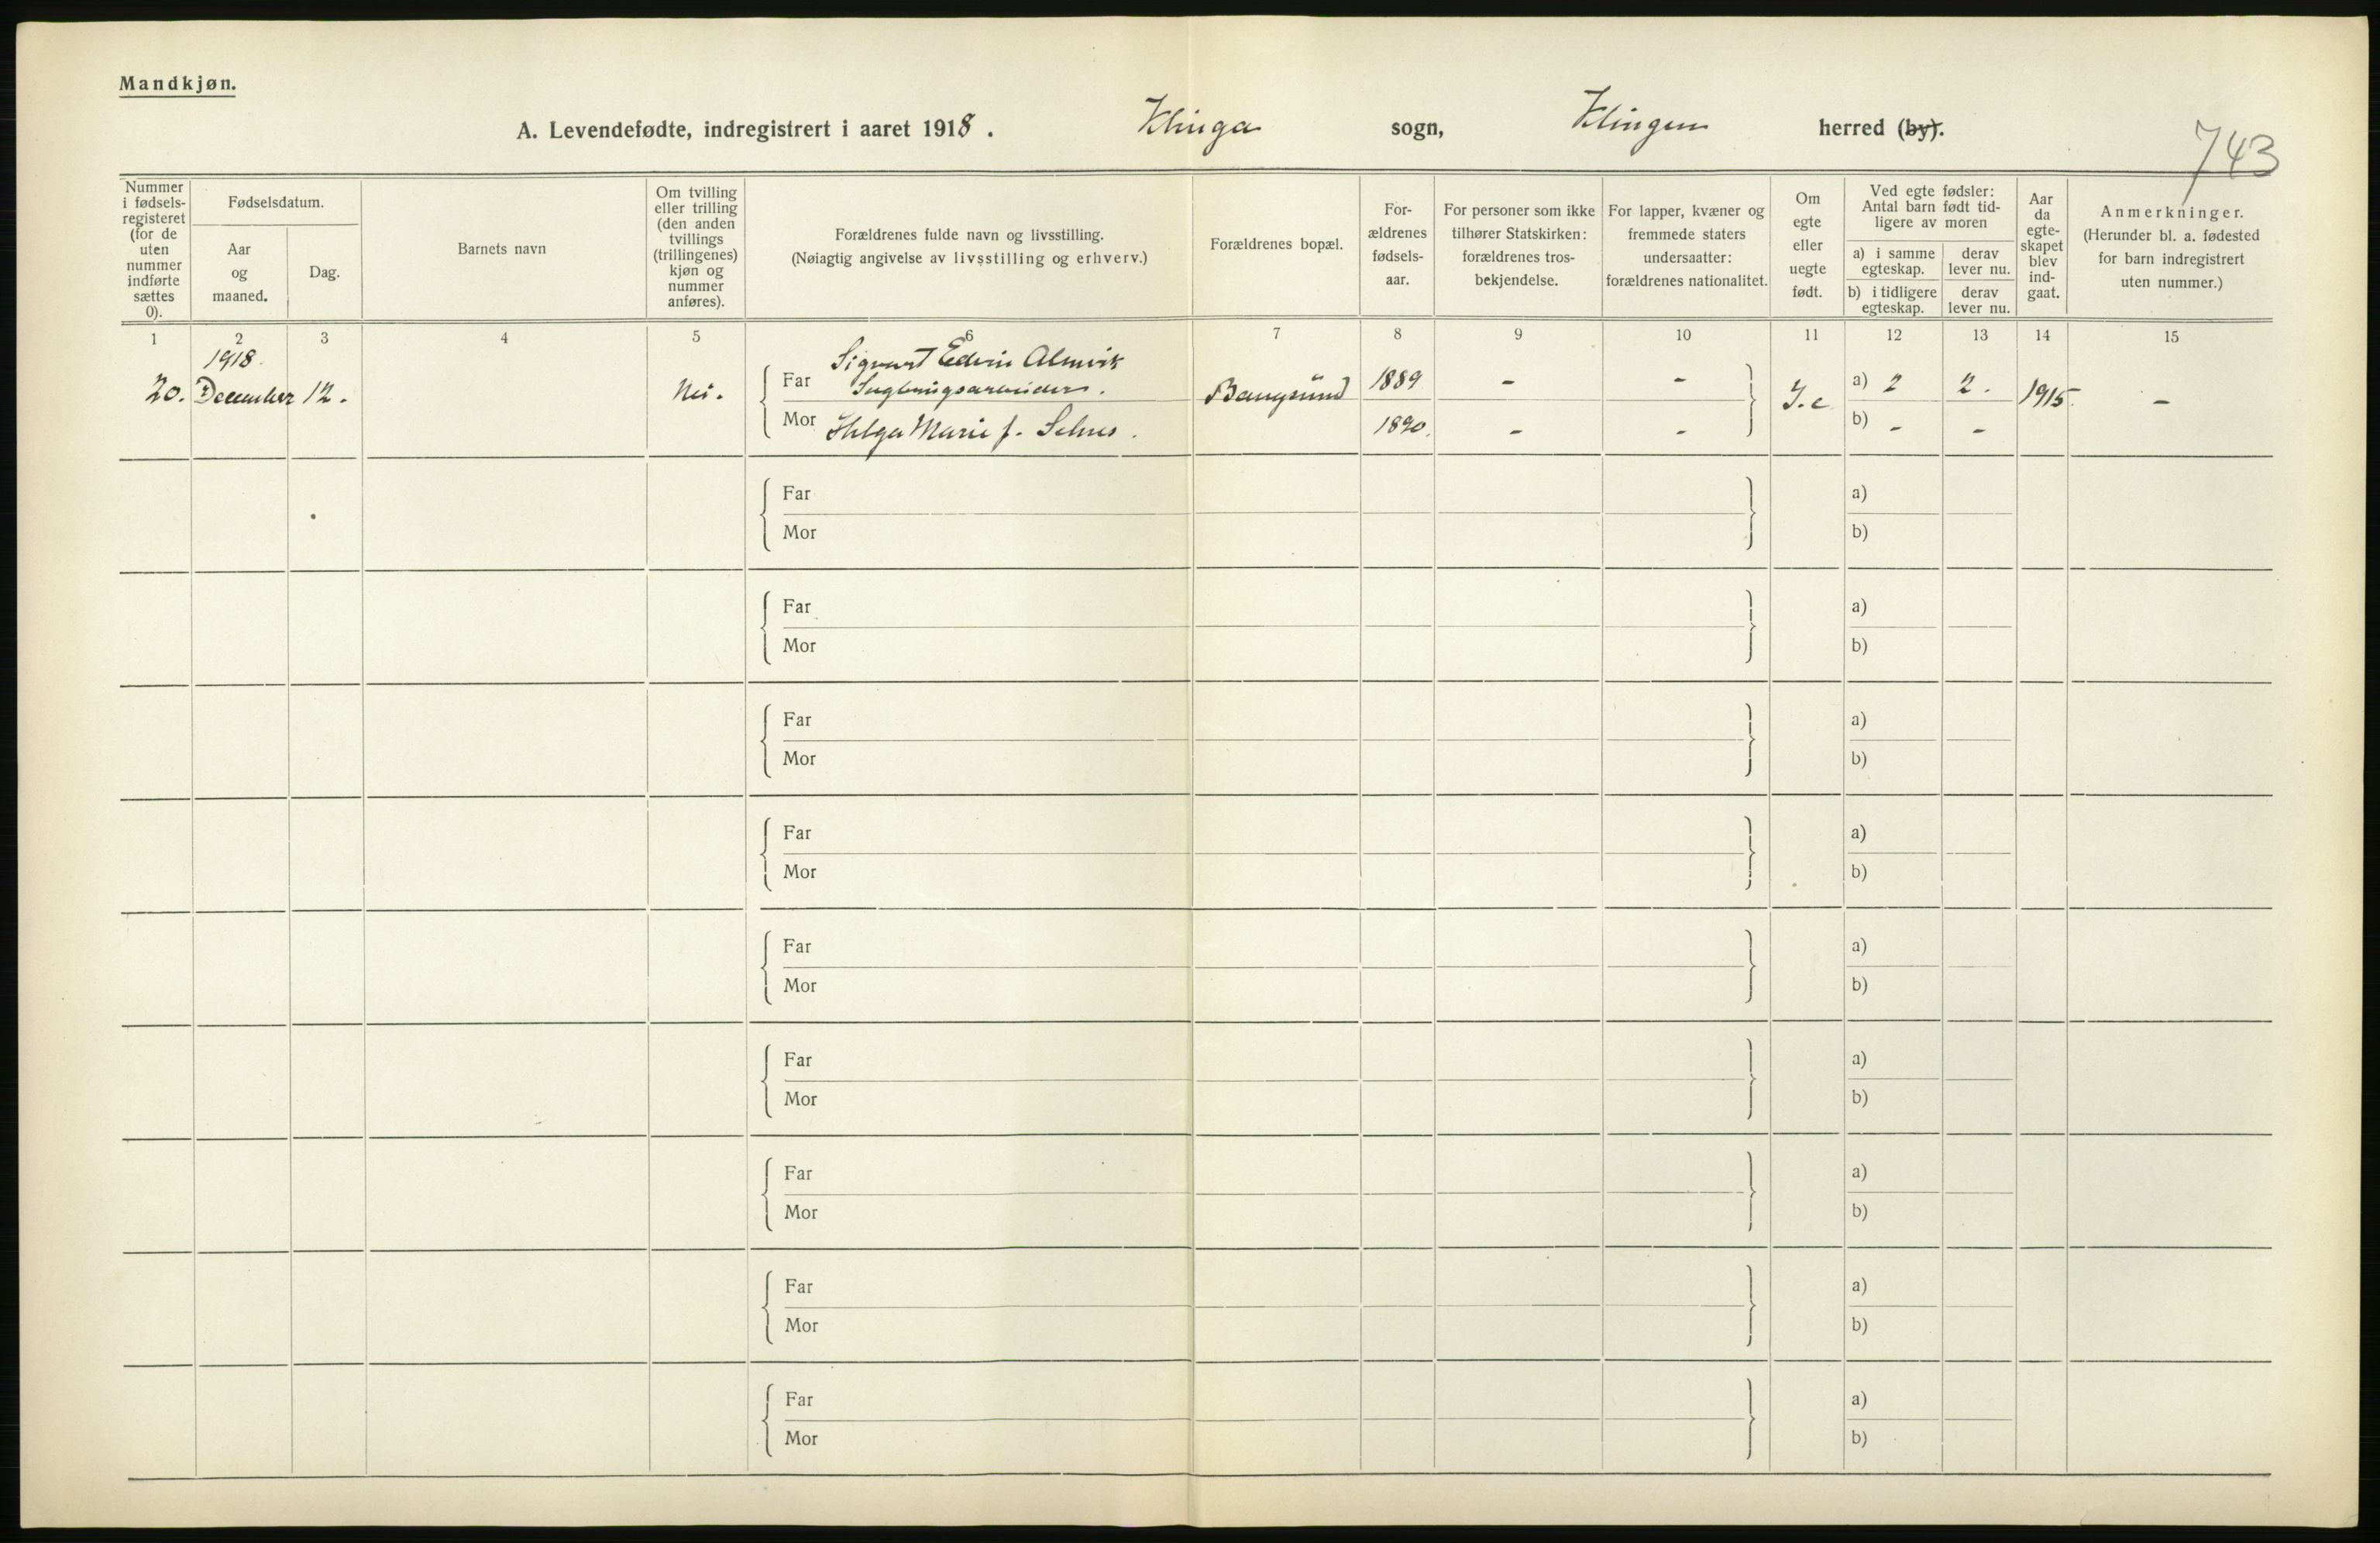 Mandkjøn.
A. Levendefødte, indregistrert i aaret 1918. Klinga sogn, Klingen herred (by).
743
Nummer i fødsels-registeret (for de uten nummer indførte sættes 0).
Fødselsdatum.
Aar og maaned.
Dag.
Barnets navn
Om tvilling eller trilling (den anden tvillings (trillingenes) kjøn og nummer anføres).
Forældrenes fulde navn og livsstilling.
(Nøiagtig angivelse av livsstilling og erhverv.)
Forældrenes bopæl.
For-ældrenes fødsels-aar.
For personer som ikke tilhører Statskirken: forældrenes tros-bekjendelse.
For lapper, kvæner og fremmede staters undersaatter: forældrenes nationalitet.
Om egte eller uegte født.
Ved egte fødsler: Antal barn født tid-ligere av moren
a) i samme egteskap.
derav lever nu.
b) i tidligere egteskap.
derav lever nu.
Aar da egte-skapet blev ind-gaat.
Anmerkninger.
(Herunder bl. a. fødested for barn indregistrert uten nummer.)
1 2 3 4 5 6 7 8 9 10 11 12 13 14 15
1918.
20. December 12. Nei.
Far Sigvart Edvin Almvik
Sagbrugsarbeider.
Bangsund 1889 - - a) 2 2. 1915. -
Mor Helga Marie f. Selnes. 1890. - - b) - -
Far a)
Mor b)
Far a)
Mor b)
Far a)
Mor b)
Far a)
Mor b)
Far a)
Mor b)
Far a)
Mor b)
Far a)
Mor b)
Far a)
Mor b)
Far a)
Mor b)